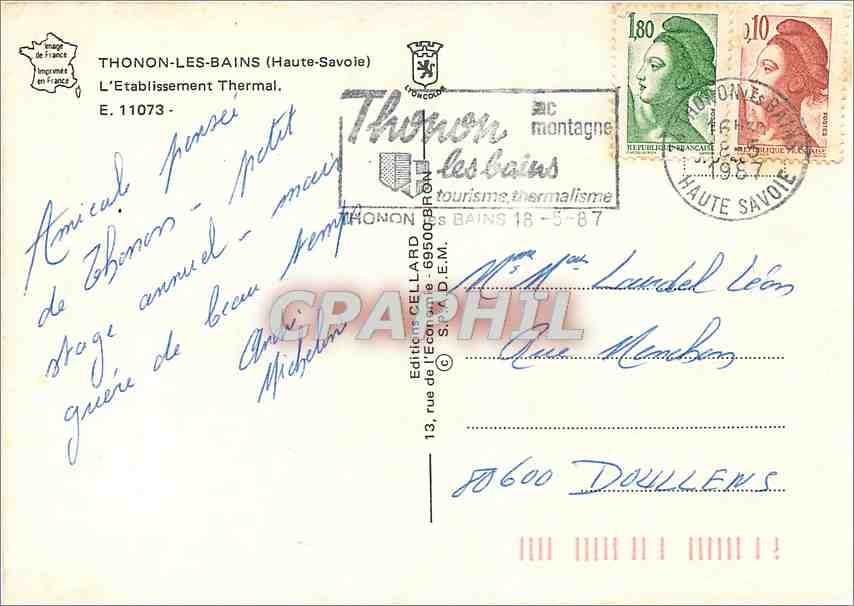 Image
de France
Imprimée
en France
THONON-LES-BAINS (Haute-Savoie)
L'Etablissement Thermal.
E. 11073 -
LYONCOLOR
Amicale pensée
de Thonon - petit
stage annuel - mais
guère de beau temps
André
Michelon
Thonon
les bains
lac
montagne
tourisme, thermalisme
THONON les BAINS 18-5-87
1,80
REPUBLIQUE FRANÇAISE
0,10
POSTES
REPUBLIQUE FRANÇAISE
THONON LES BAINS
16H
1987
HAUTE SAVOIE
Editions CELLARD
13, rue de l'Economie - 69500 BRON
© S.P.A.D.E.M.
CPARAMA
Léon
Rue
80600 DOULLENS